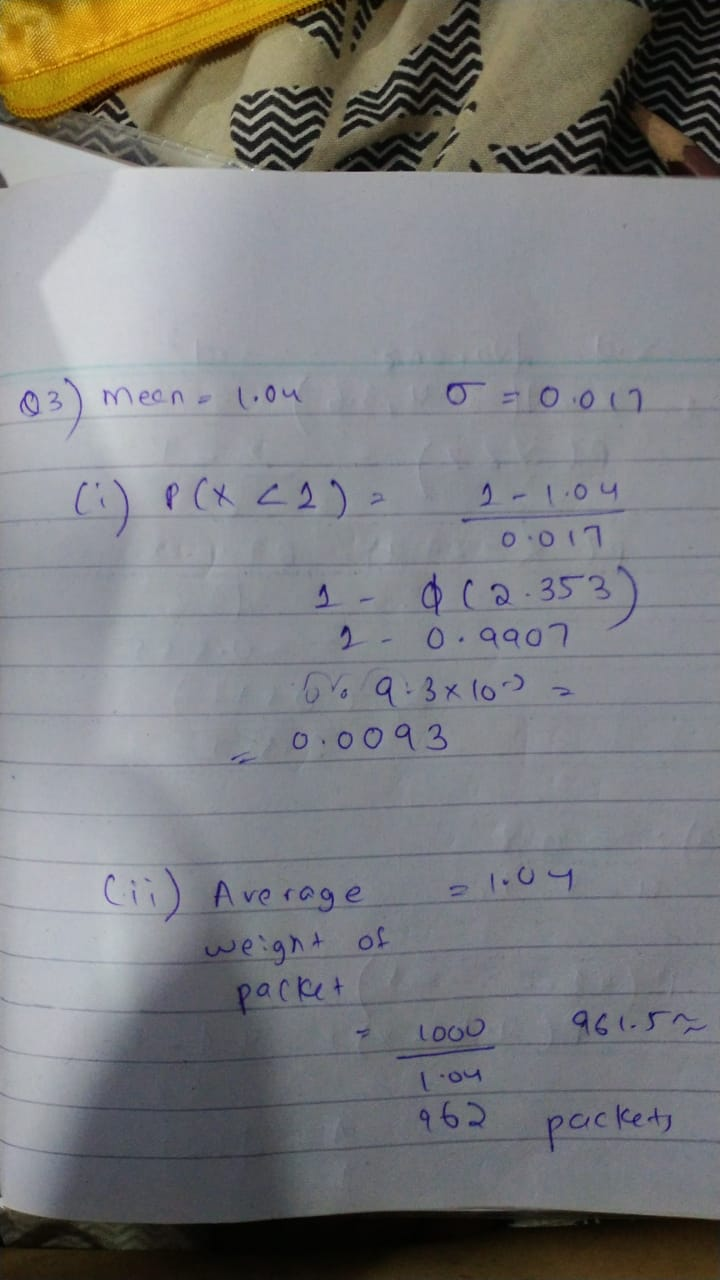 Q3) Meen = 1.04 σ = 0.017
(i) P(X < 1) = 1 - 1.04
0.017
1 - ϕ(2.353)
1 - 0.9907
9.3 x 10-3 =
= 0.0093
(ii) Average = 1.04
weight of
packet
= 1000 961.5 ≈
1.04
962 packets